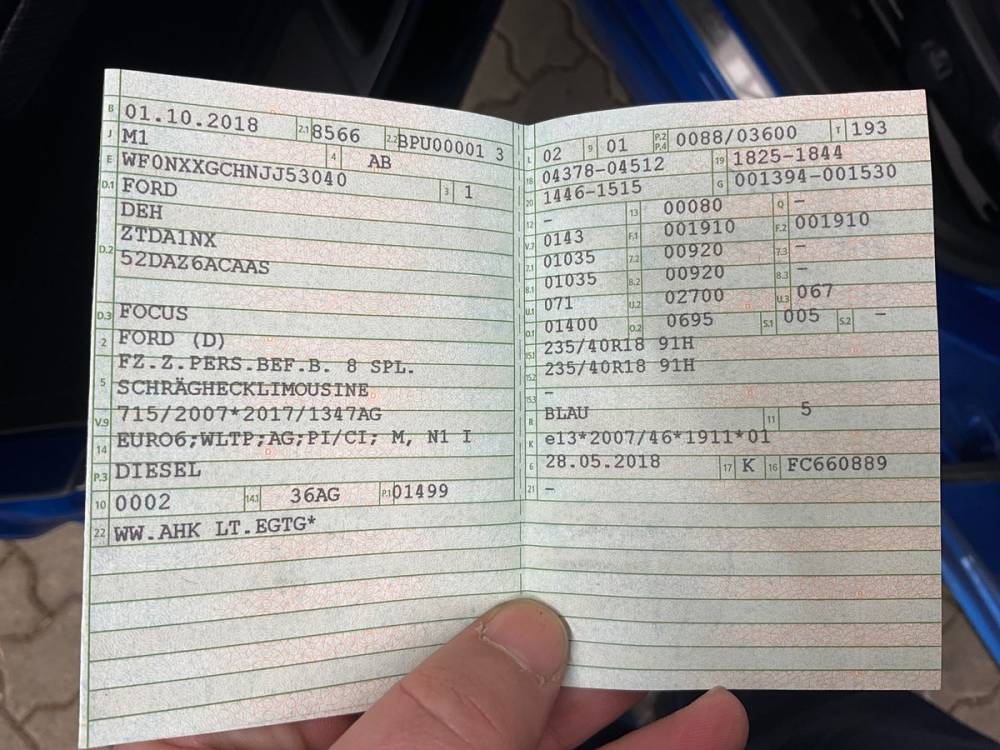 B 01.10.2018 2.1 8566 2.2 BPU00001 3
J M1 4 AB
E WF0NXXGCHNJJ53040 3 1
D.1 FORD
DEH
D.2 ZTDA1NX
52DAZ6ACAAS
D.3 FOCUS
2 FORD (D)
5 FZ.Z.PERS.BEF.B. 8 SPL.
SCHRÄGHECKLIMOUSINE
V.9 715/2007*2017/1347AG
14 EURO6;WLTP;AG;PI/CI; M, N1 I
P.3 DIESEL
10 0002 14.1 36AG P.1 01499
22 WW.AHK LT.EGTG*
L 02 9 01 P.2 P.4 0088/03600 T 193
18 04378-04512 19 1825-1844
20 1446-1515 G 001394-001530
12 - 13 00080 Q -
V.7 0143 F.1 001910 F.2 001910
7.1 01035 7.2 00920 7.3 -
8.1 01035 8.2 00920 8.3 -
U.1 071 U.2 02700 U.3 067
O.1 01400 O.2 0695 S.1 005 S.2 -
15.1 235/40R18 91H
15.2 235/40R18 91H
15.3 -
R BLAU 11 5
K e13*2007/46*1911*01
6 28.05.2018 17 K 16 FC660889
21 -